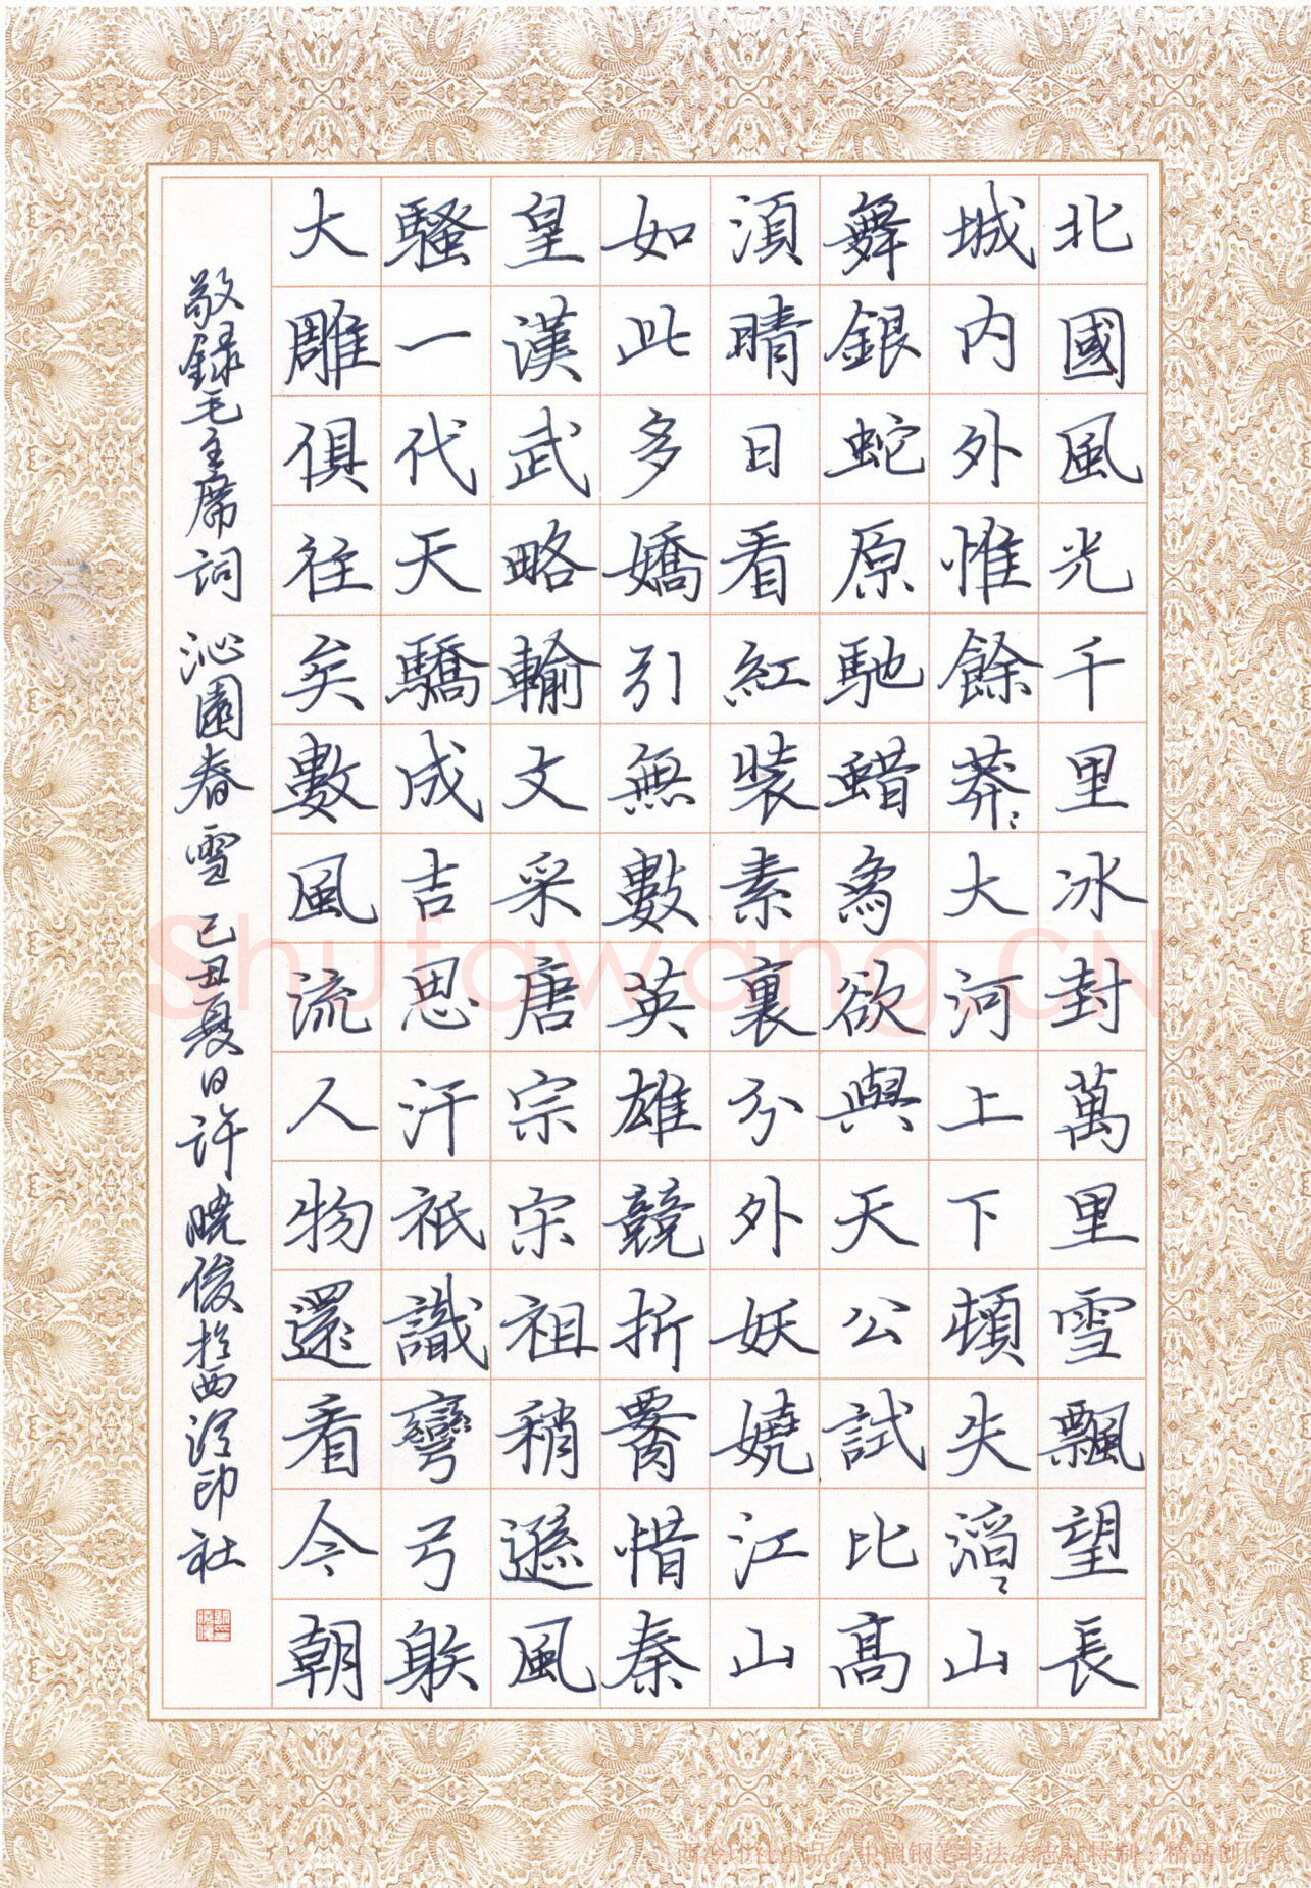 北國風光千里冰封萬里雪飄望長
城内外惟餘莽〻大河上下頓失滔〻山
舞銀蛇原馳蜡象欲與天公試比高
須晴日看紅裝素裹分外妖嬈江山
如此多嬌引無數英雄競折腰惜秦
皇漢武略輸文采唐宗宋祖稍遜風
騷一代天驕成吉思汗祇識彎弓射
大雕俱往矣數風流人物還看今朝
敬録毛主席詞 沁園春雪 己丑夏日許曉俊於西泠印社
Shufawang.CN